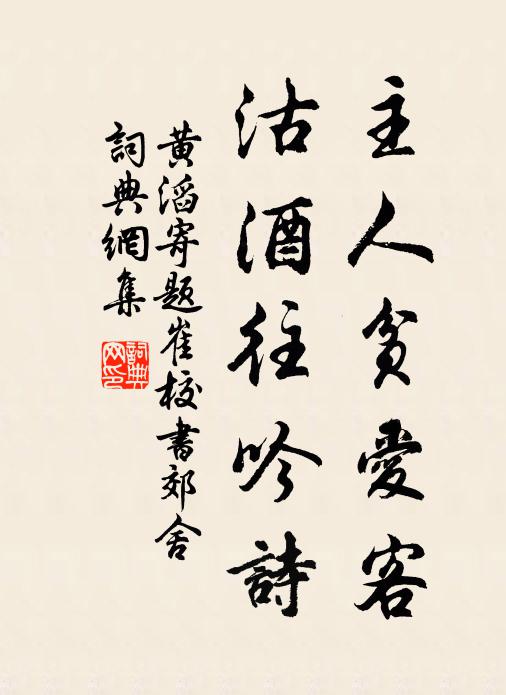 主人貧愛客
沽酒往吟詩
黃滔寄題崔校書郊舍
詞典網集
詞典網印